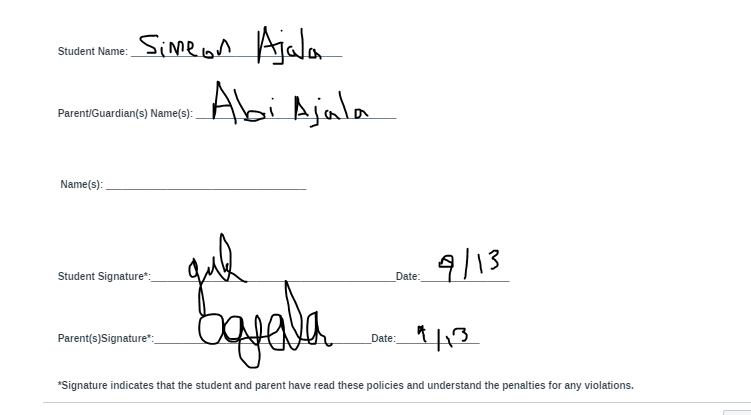 Student Name: Simeon Ajala
Parent/Guardian(s) Name(s): Abi Ajala
Name(s):
Student Signature*: Date: 9/13
Parent(s)Signature*: Date: 9/13
*Signature indicates that the student and parent have read these policies and understand the penalties for any violations.